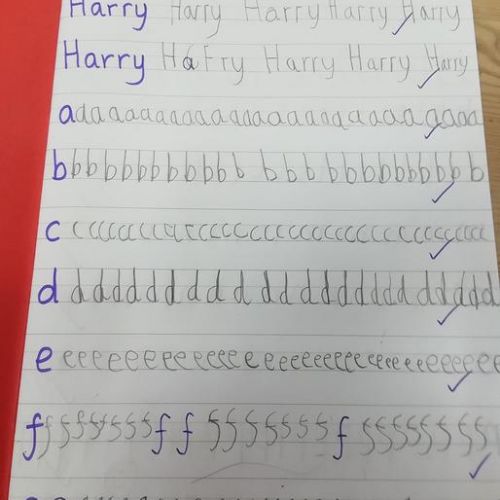 Harry Harry Harry Harry Harry
Harry HaFry Harry Harry Harry
a aaaaaaaaaaaaaaaaaaaaaaaaaa
b bbbbbbbbbbb b bbb bbbbbbbbb b
c ccccccccccccccccccccccccccccc
d ddddddddd dddddddddddddd
e eeeeeeeeeeeeeeeeeeeeeeeeeeeee
f fffffffff f ffffffff f ffffffff